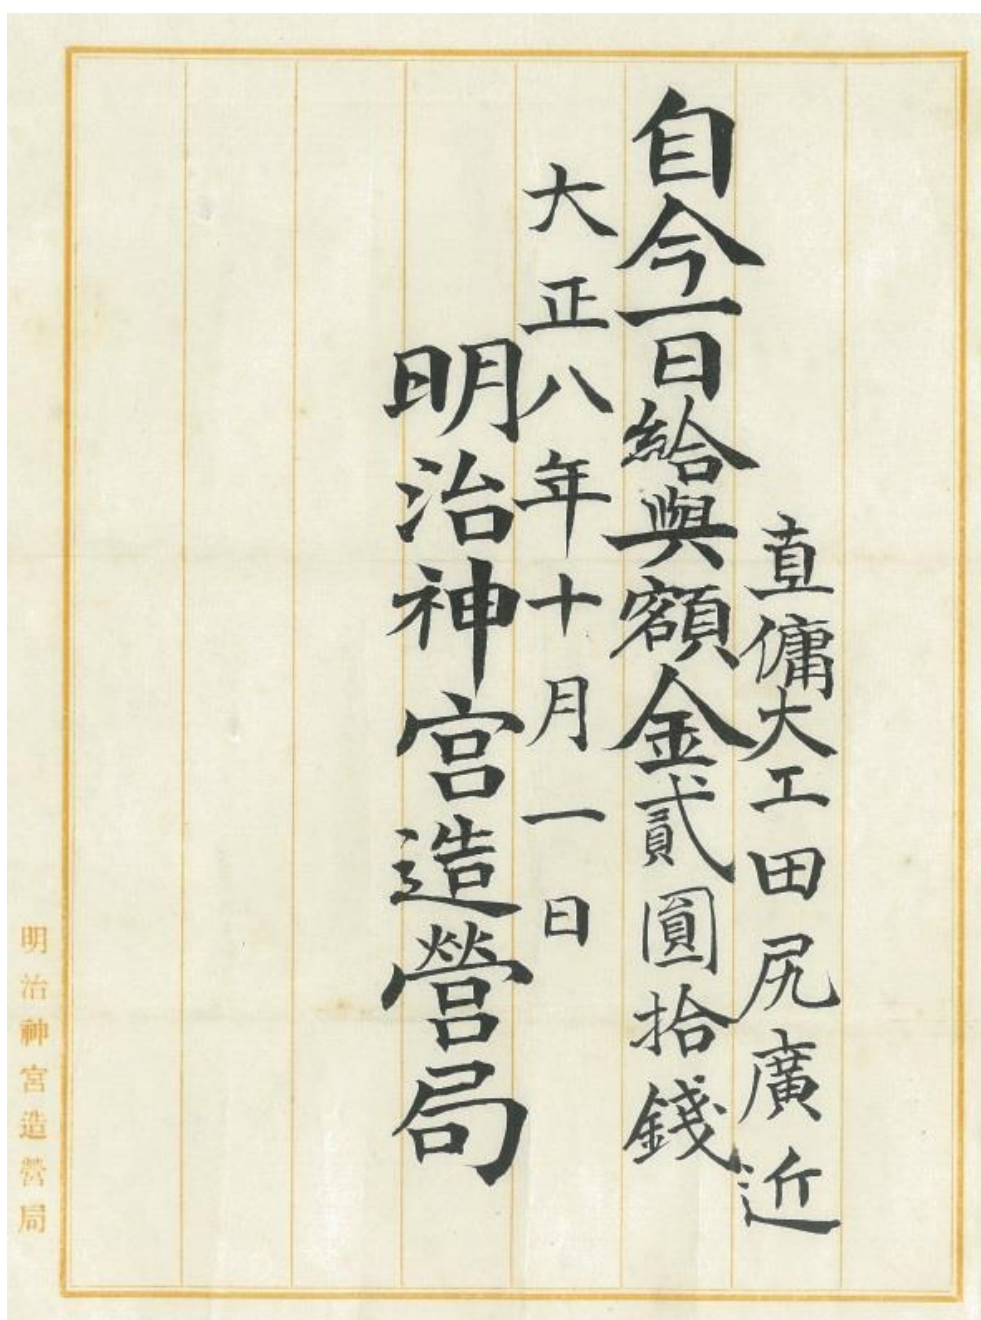 直傭大工田尻廣近
自今一日給與額金貳圓拾錢
大正八年十月一日
明治神宮造營局
明治神宮造營局